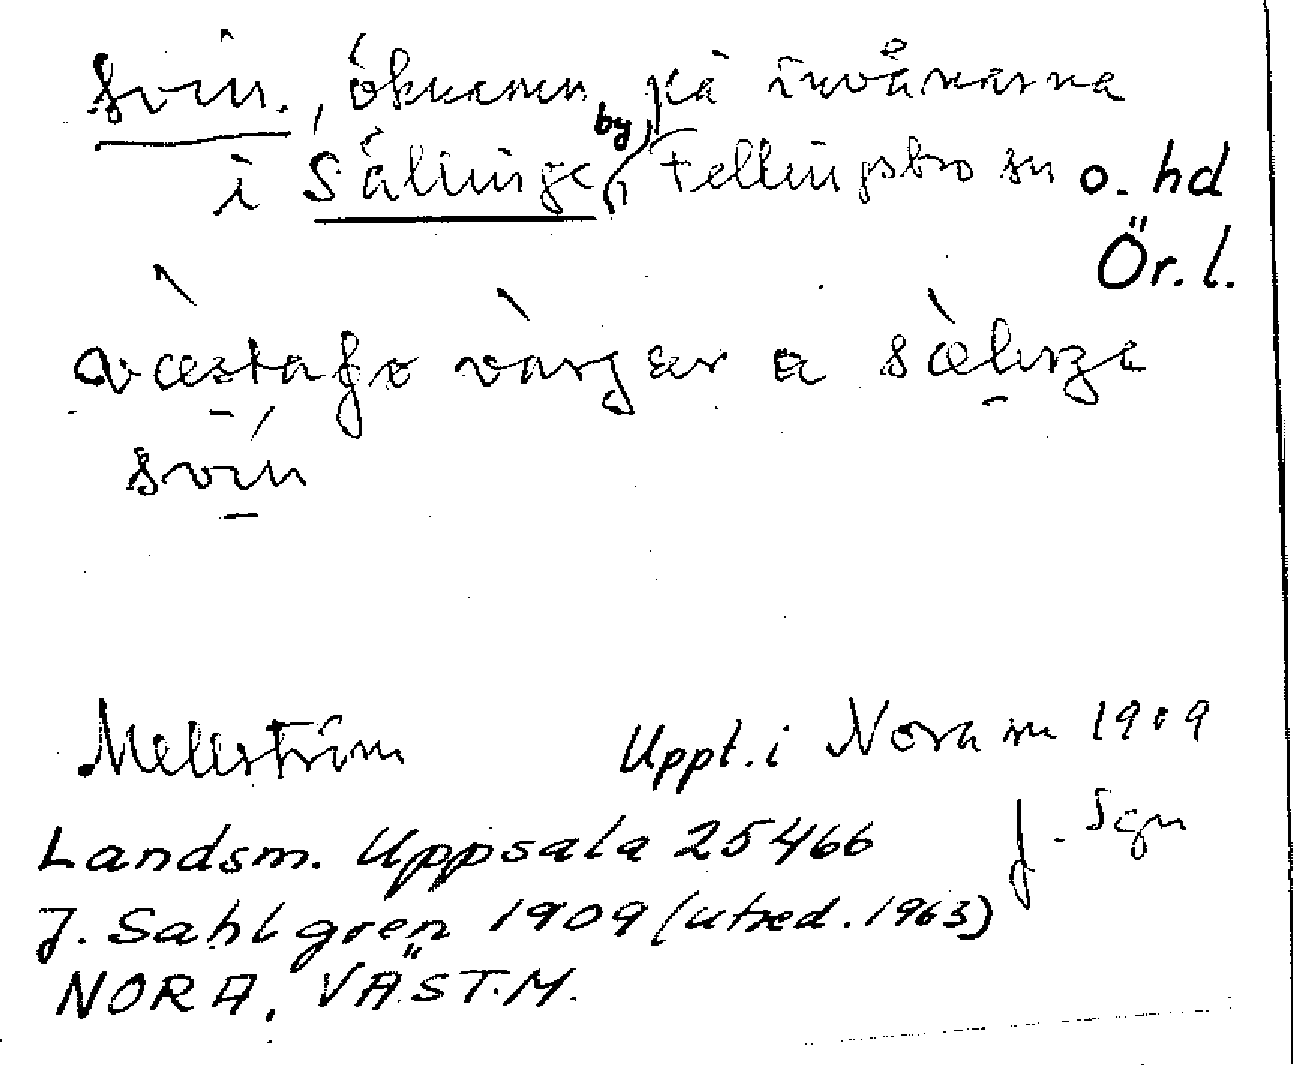 svin., öknamn på invånarna
i Sällinge by, Fellingsbro sn o. hd
Ör. l.
värgar a sälinge
svin
Mellström Uppt. i Nora sn 1909
J. Sgn
Landsm. Uppsala 25466
J. Sahlgren 1909 (utred. 1963)
NORA, VÄSTM.